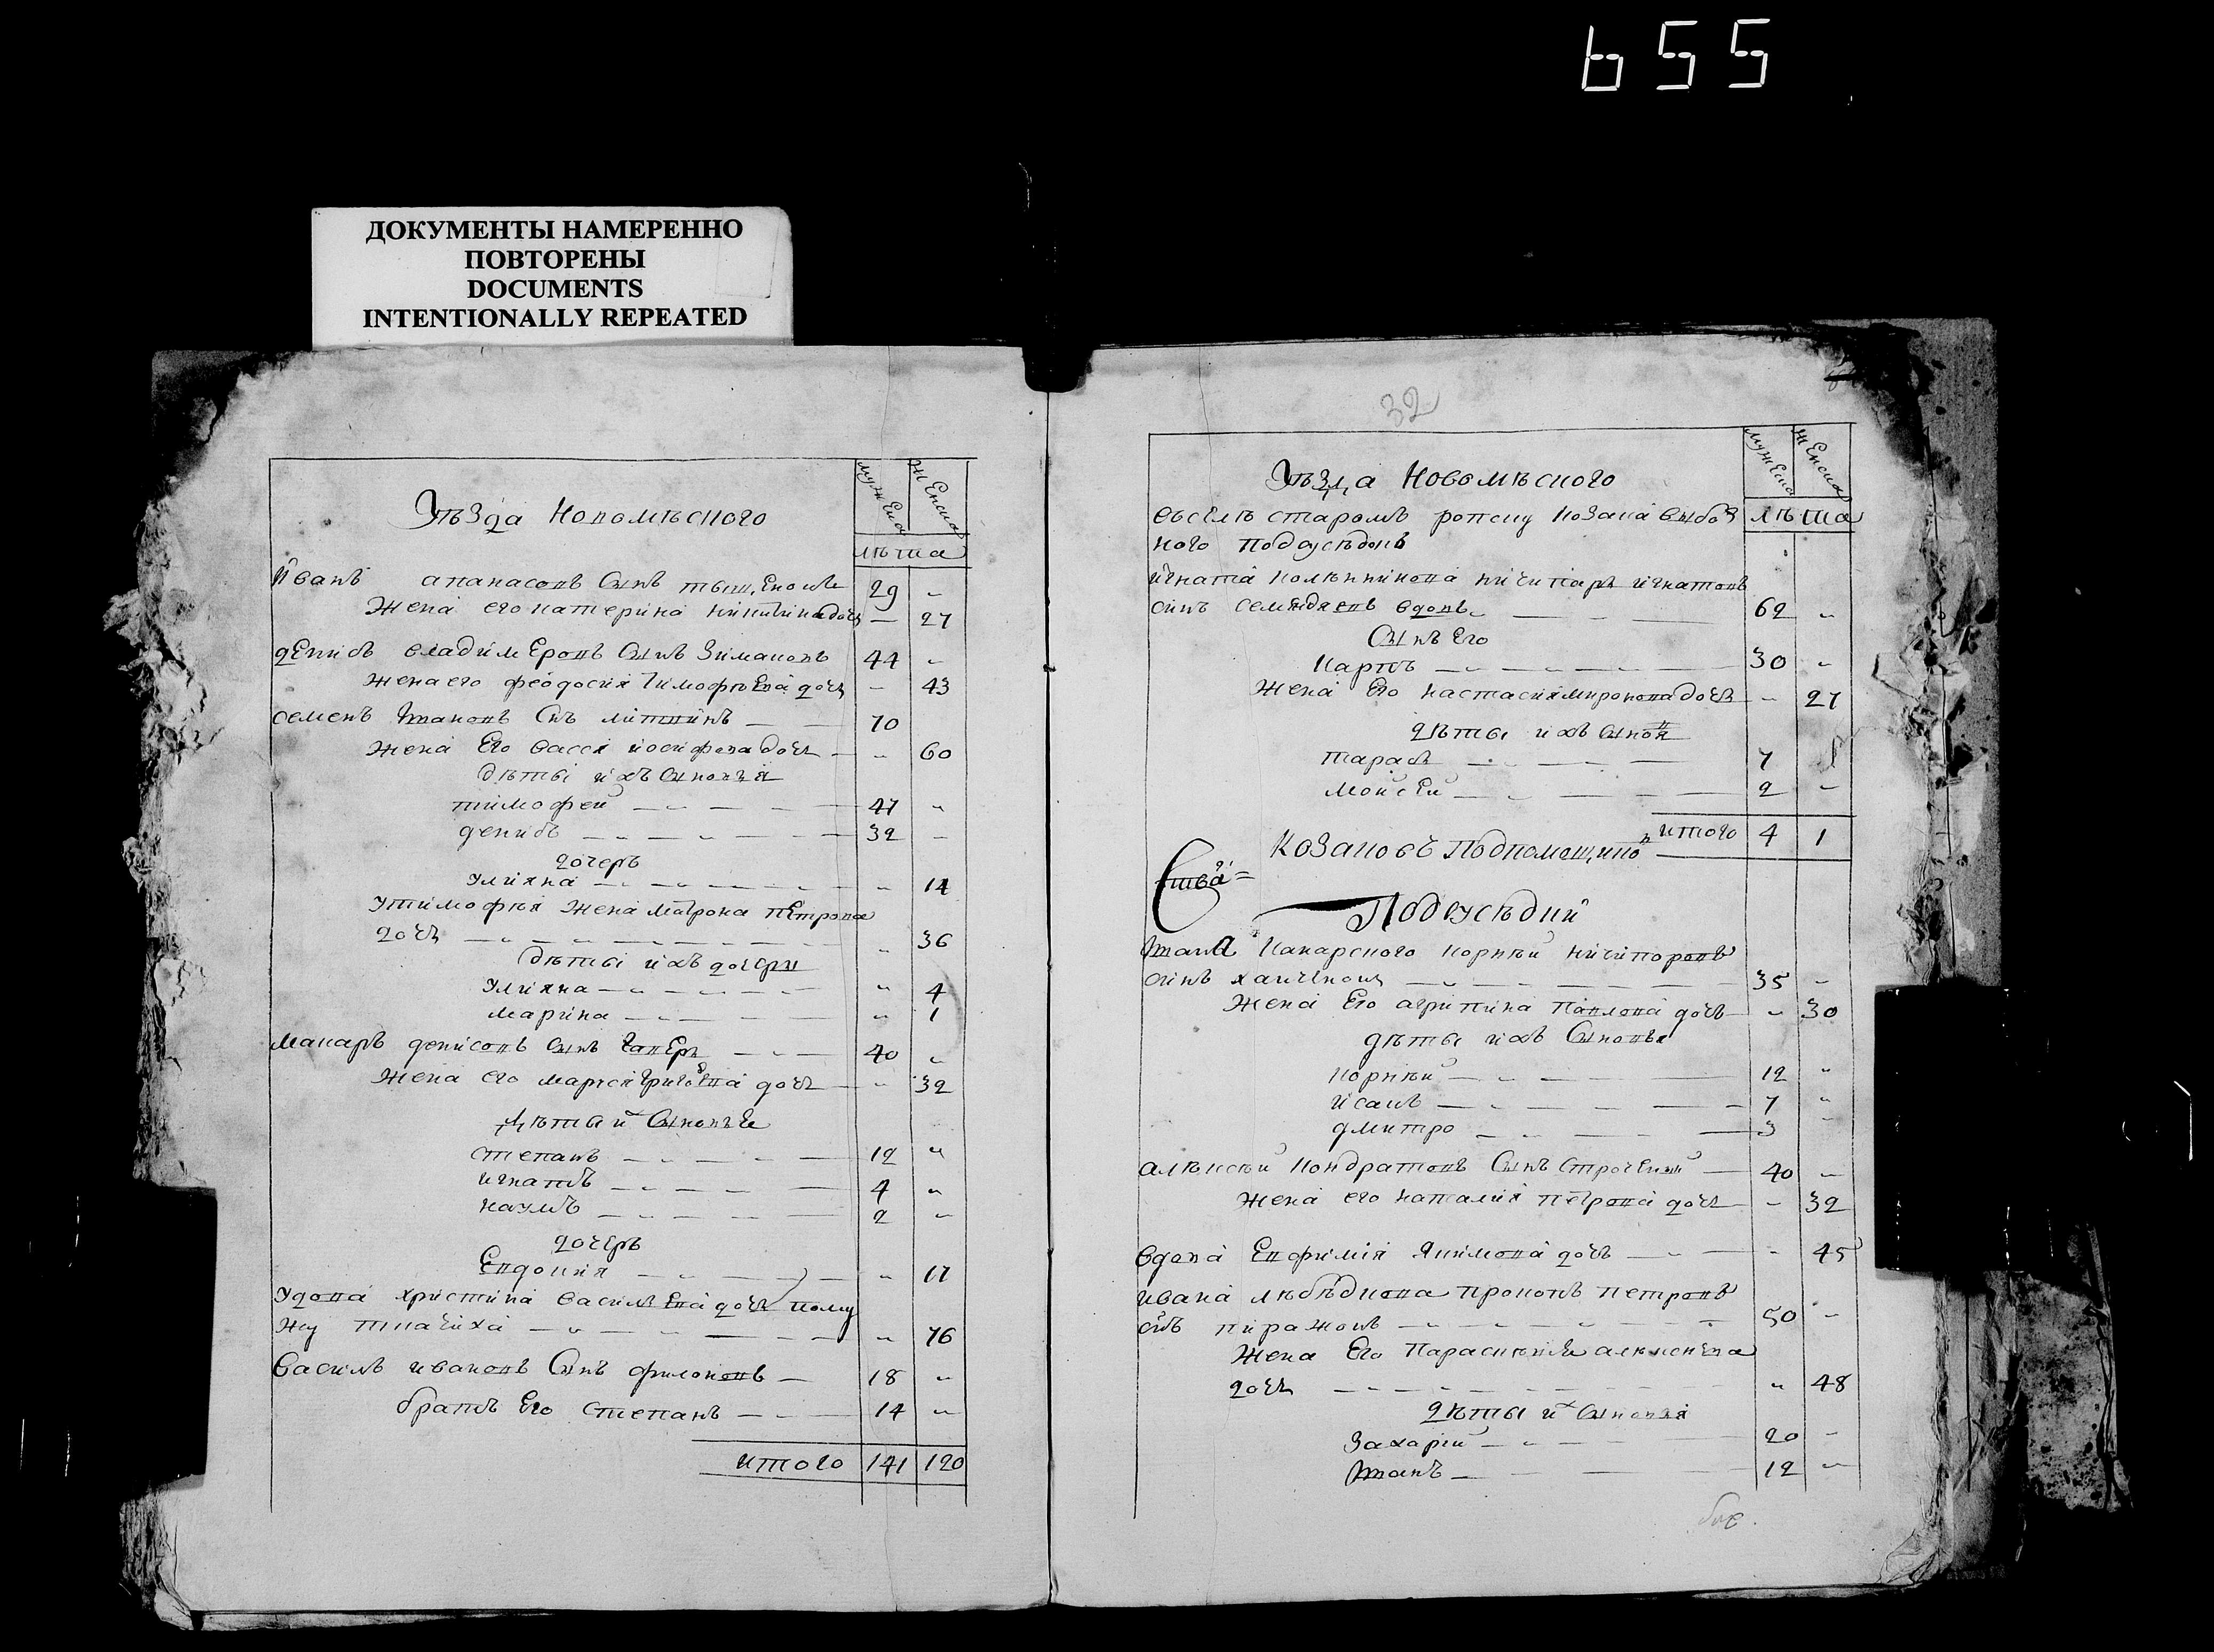 655
ДОКУМЕНТЫ НАМЕРЕННО
ПОВТОРЕНЫ
DOCUMENTS
INTENTIONALLY REPEATED
Уѣзда Новомѣского
мужеска женска
лѣта
Иванъ апанасовъ сынъ
Жена его катерина никитина дочь — 27
29
денисъ владимеровъ сынъ Зимаковъ 44
жена его феодосия Тимофѣева дочь — 43
семенъ сынъ 70
жена Его васса иосифова дочь 60
дѣты ихъ сыновья
тимофей 47
денисъ 32
дочеръ
улияна 14
утимофѣя жена матрона петрова
дочь 36
дѣты ихъ дочери
улияна 4
марина 1
макаръ денисовъ сынъ 40
жена его марфа григорева дочь 32
дѣты их сыновье
степанъ 12
игнатъ 4
наумъ 2
дочеръ
Евдокия 17
удова христина василева дочь пому
жу ткачиха 76
василь ивановъ сынъ филоновъ 18
братъ Его степанъ 14
итого 141 120
32
Уѣзда Новомѣского
мужеска женска
лѣта
въселѣ старомъ ропску козака выбор
ного подсусѣдокъ
игната ничипаръ игнатовъ
синъ вдовъ 62
сынъ Его
карпъ 30
жена Его настасия миронова дочь 27
дѣты ихъ сыновя
тарасъ 7
мойсей 2
итого 4 1
козаковъ подпомощико
ства
Подсусѣдки
корнѣй ничипоровъ
синъ 35
жена Его агрипина павлова дочь 30
дѣты ихъ сыновья
корнѣй 12
исакъ 7
дмитро 3
алѣксѣй кондратовъ сынъ 40
жена его наталия петрова дочь 32
вдова Ефимия якимова дочь 45
ивана прокопъ петровъ
снъ пиражокъ 50
жена Его Параскевия алексеева
дочь 48
дѣты их сыновья
захарий 20
12